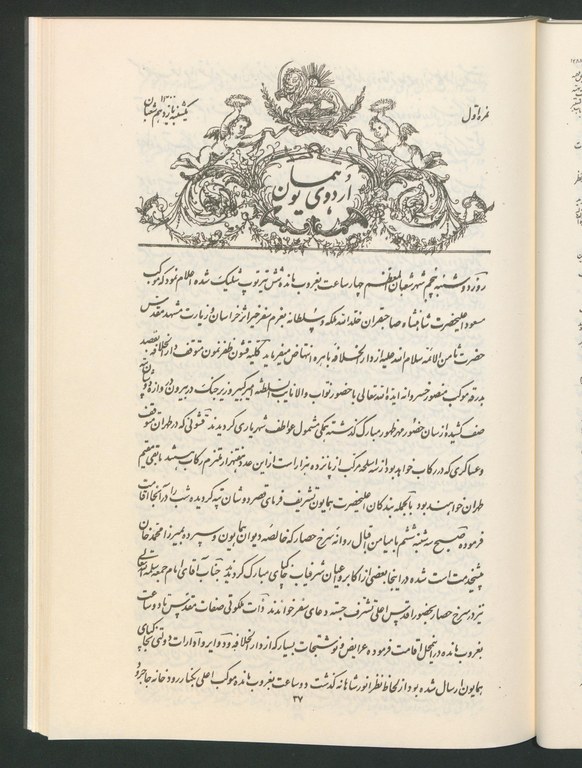 نمره اول
یکشنبه یازدهم شعبان ۱۳۰۰
اردوی همایون
روز دوشنبه پنجم شهر شعبان المعظم چهار ساعت بغروب مانده شش تیر توپ شلیک شده اعلام نمود که موکب
مسعود اعلیحضرت شاهنشاه صاحبقران خلد الله ملکه و سلطانه بعزم سفر خیر اثر خراسان و زیارت مشهد مقدس
حضرت ثامن الائمه سلام الله علیه از دار الخلافه باهره انتهاض میفرماید کلیه قشون ظفرنمون متوقف دار الخلافه بقصد
بدرقه موکب منصور خسروانه ایده الله تعالی با حضور نواب والا نایب السلطنه امیر کبیر وزیر جنگ در بیرون دروازه دوشان تپه
صف کشیده از سان حضور مهر ظهور مبارک گذشته همگی مشمول عواطف شهریاری گردیدند قشونی که در طهران متوقف
و عساکری که در رکاب خواهد بود از سه اسلحه مرکب از پانزده هزار است از این عدد هفتهزار ملتزم رکاب میباشند باقی مقیم
طهران خواهند بود بالجمله بندگان اعلیحضرت همایون تشریف فرمای قصر دوشان تپه گردیده شب را در آنجا اقامت
فرموده صبح سه شنبه ششم با میامن اقبال روانه سرخ حصار که خالصه دیوان همایون و سپرده بمیرزا محمد خان
پیشخدمت است شده در اینجا بعضی از اکابر و اعیان شرفیاب خاکپای مبارک گردیدند جناب آقای امام جمعه سلمه الله تعالی
نیز در سرخ حصار بحضور اقدس اعلی تشرف جسته دعای سفر خواندند ذات ملکوتی صفات مقدس تا دو ساعت
بغروب مانده در اینمحل اقامت فرموده عرایض و نوشتجات بسیار که از دار الخلافه و دوایر و ادارات دولتی بخاکپای
همایون ارسال شده بود از لحاظ نظر انور شاهانه گذشت دو ساعت بغروب مانده موکب اعلی بکنار رودخانه جاجرود
۳۷